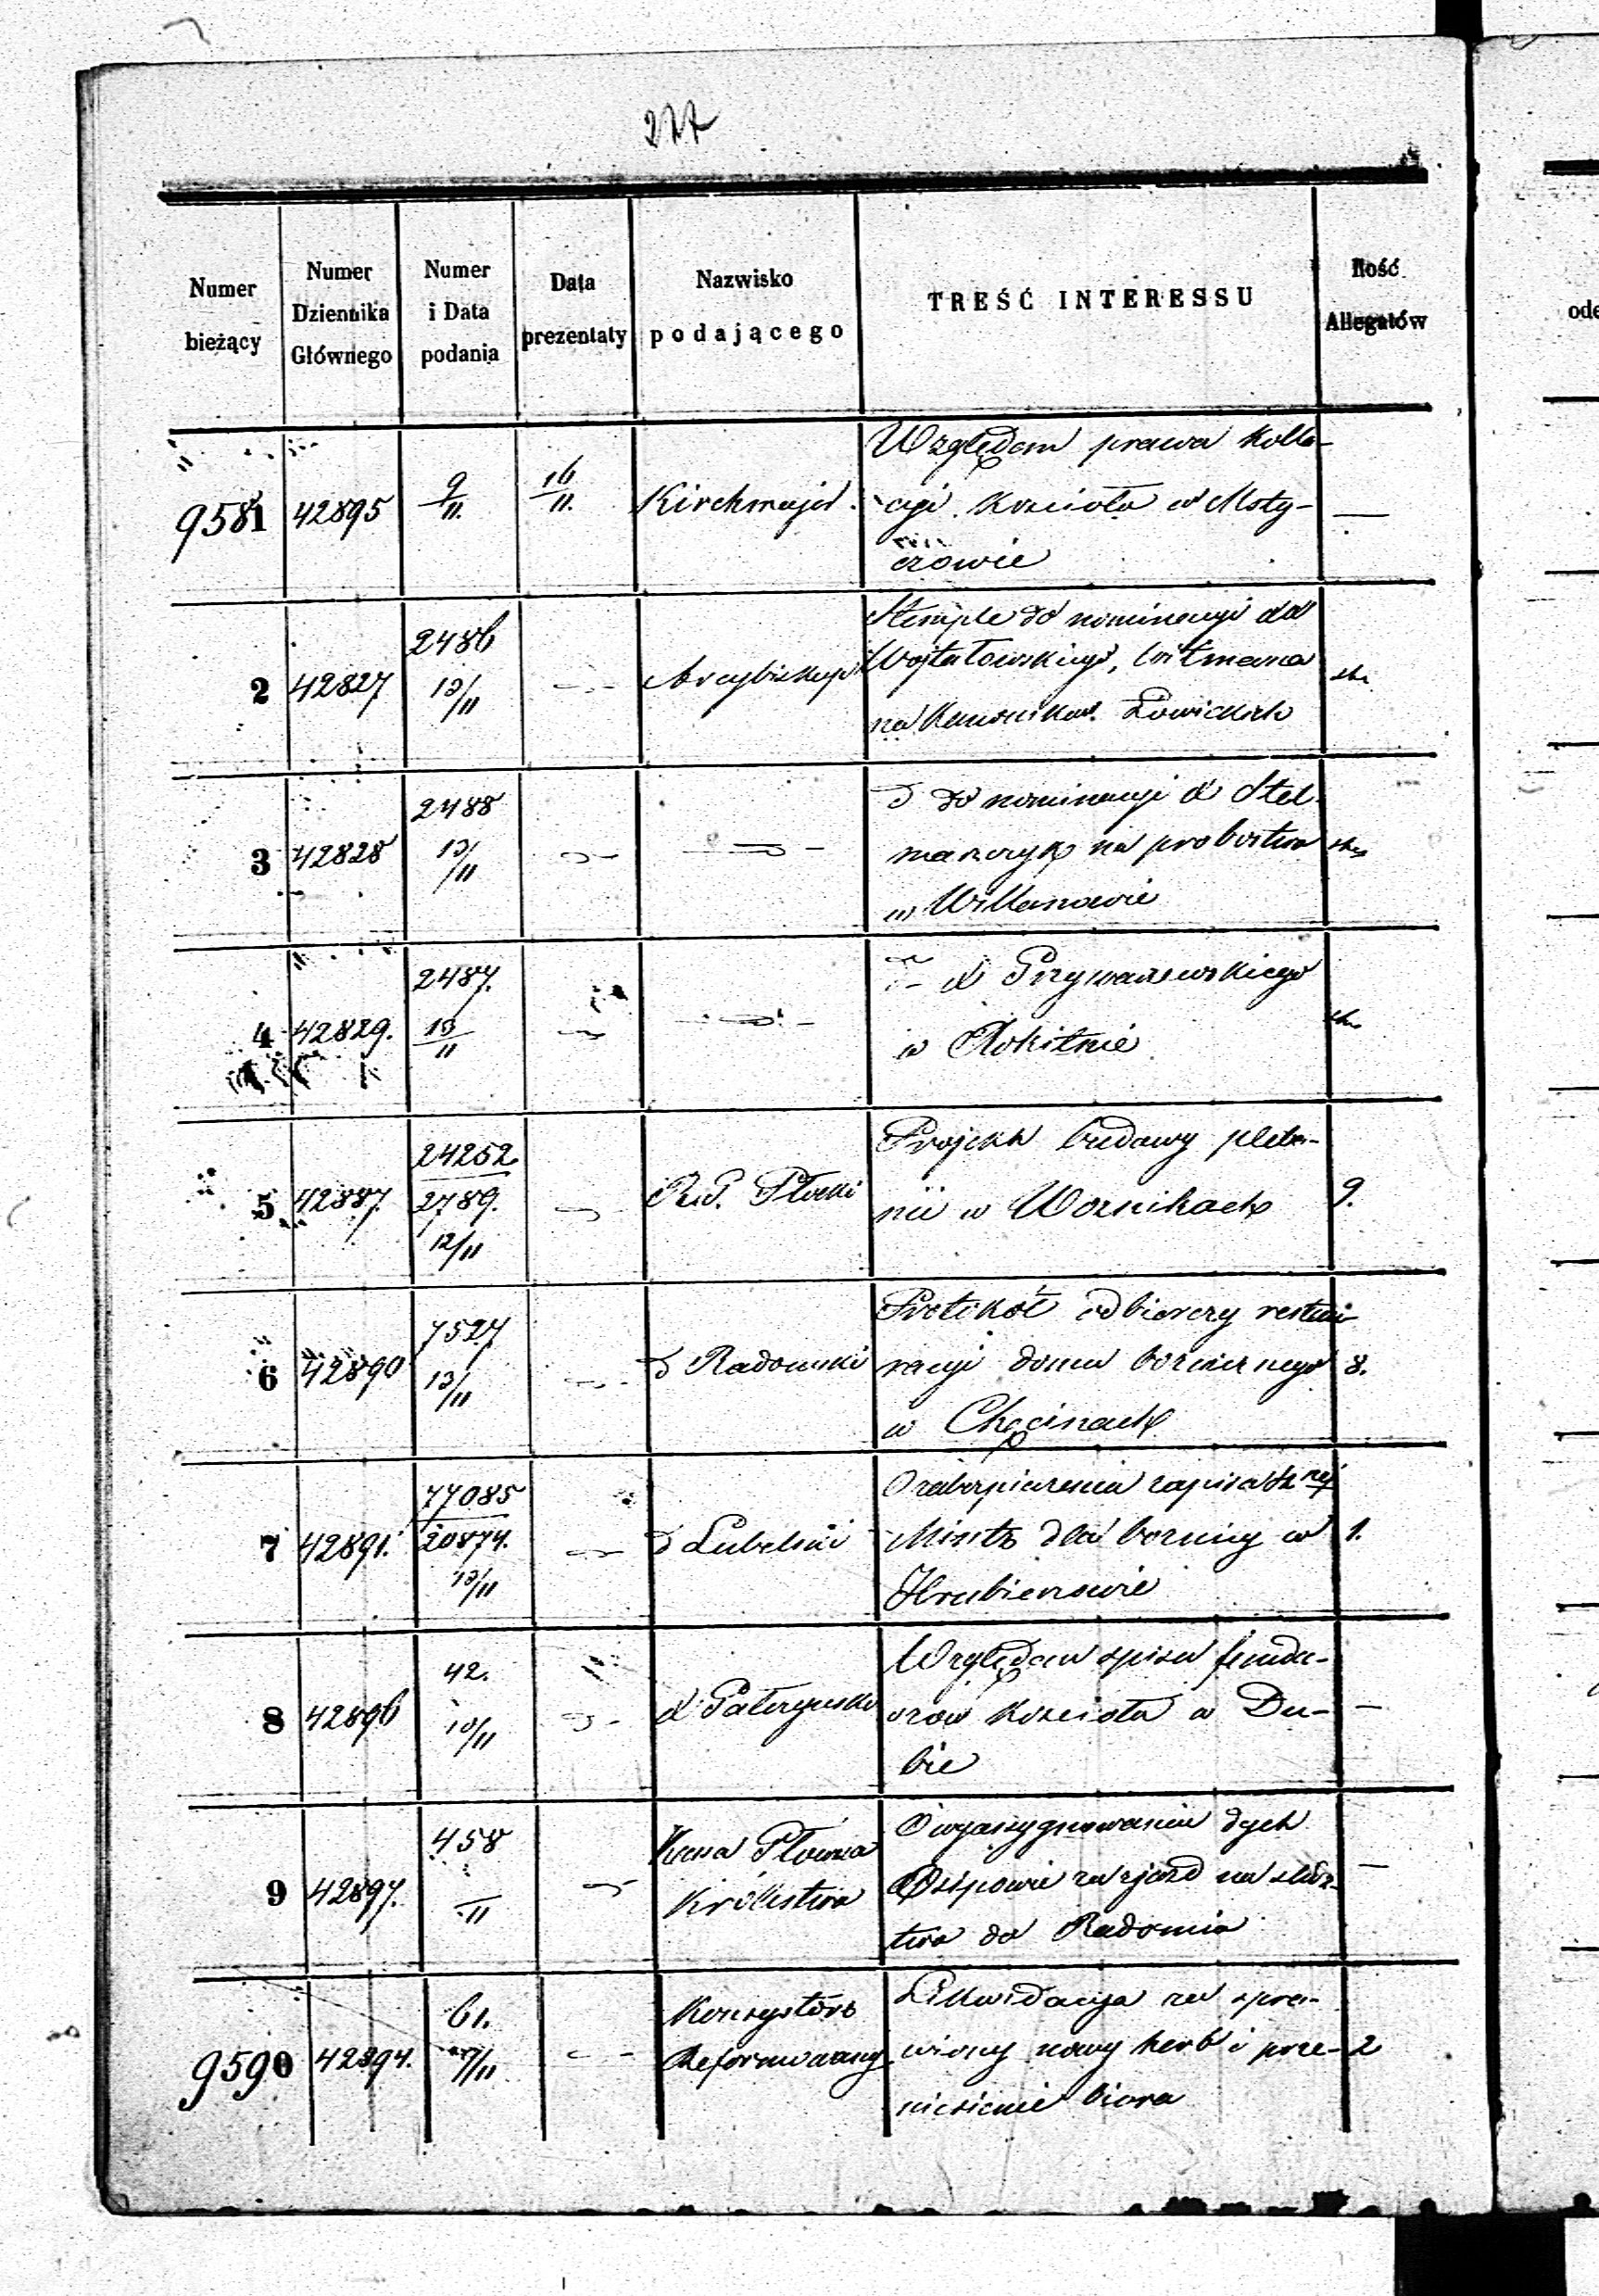 277
Numer bieżący
Numer Dziennika Głównego
Numer i Data podania
Data prezentaty
Nazwisko podającego
TREŚĆ INTERESSU
Ilość Allegatów
9581 42895 9/11. 16/11. Kirchmajer.
Względem prawa kolla-
cyi Kościoła w Msty-
czowie
—
2 42827 2486 13/11 Arcybiskup
Stemple do nominacyi dla
na Kanoników Łowickich
3 42828 2488 13/11
do nominacyi X Stel-
marczyk na probostwo
w Willanowie
4 42829. 2487. 13/11
X Przywarewskiego
w Rokitnie
5 42887. 24252 2789. 12/11 R.G. Płocki
Projekt budowy pleba-
nii w Woznikach
9.
6 42890 7527 13/11 d Radomski
Protokół odbiorczy restau-
racyi domu bożnicznego
w Chęcinach
8.
7 42891. 77085 20874. 13/11 d Lubelski
O zabezpieczenia zapisu
dla bożnicy w
Hrubieszowie
1.
8 42896 42. 10/11
Względem spisu fundu-
szów Kościoła w Du-
bie
—
9 42897. 458 /11 Kassa Główna
Królestwa
O wyassygnowaniu dyet
Osipowi za zjazd na śledz-
twa do Radomia
—
9590 42894. 61. /11 Konsystorz
Reformowany
Likwidacya za spra-
wiony nowy herb i prze-
niesienie biura
2
ode